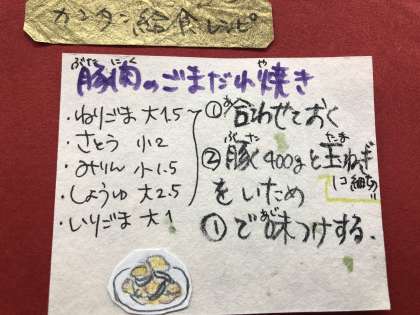 カンタン給食レシピ
ぶた にく や
豚肉のごまだれ焼き
・ねりごま 大1.5
・さとう 小2
・みりん 小1.5
・しょうゆ 大2.5
・いりごま 大1
あ
①合わせておく
ぶた たま
②豚400gと玉ねぎ
1コ細切り
をいため
あじ
①で味つけする。